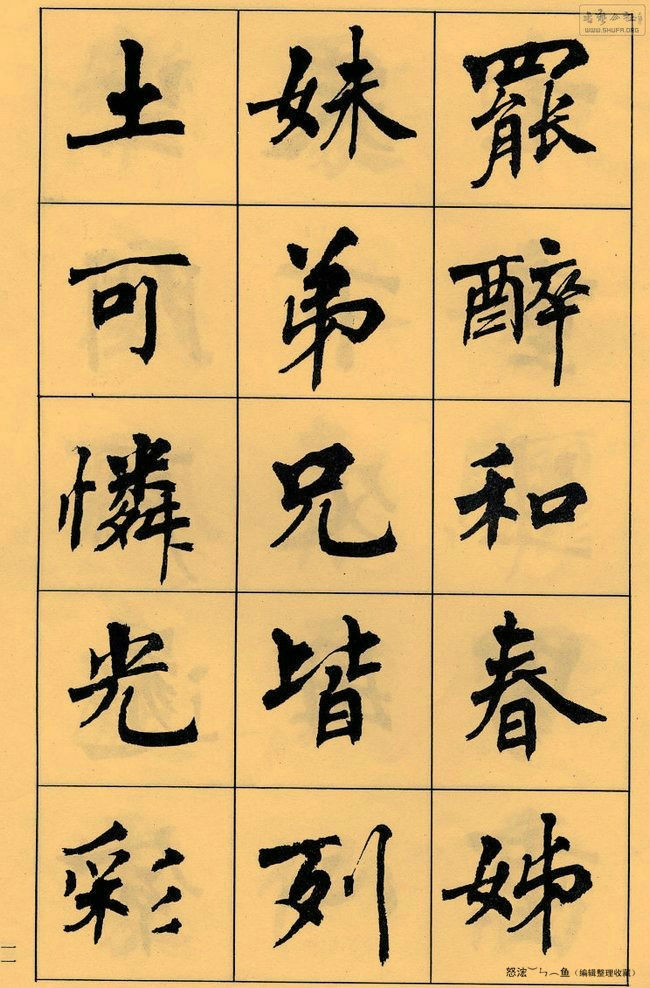 罷醉和春姊
妹弟兄皆列
土可憐光彩
一一
WWW.SHUFA.ORG
怒浤︶ㄣ︵鱼（编辑整理收藏）